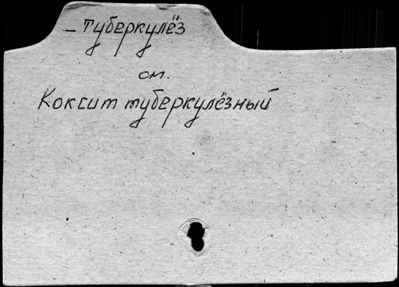 – туберкулёз
см.
Коксит туберкулёзный